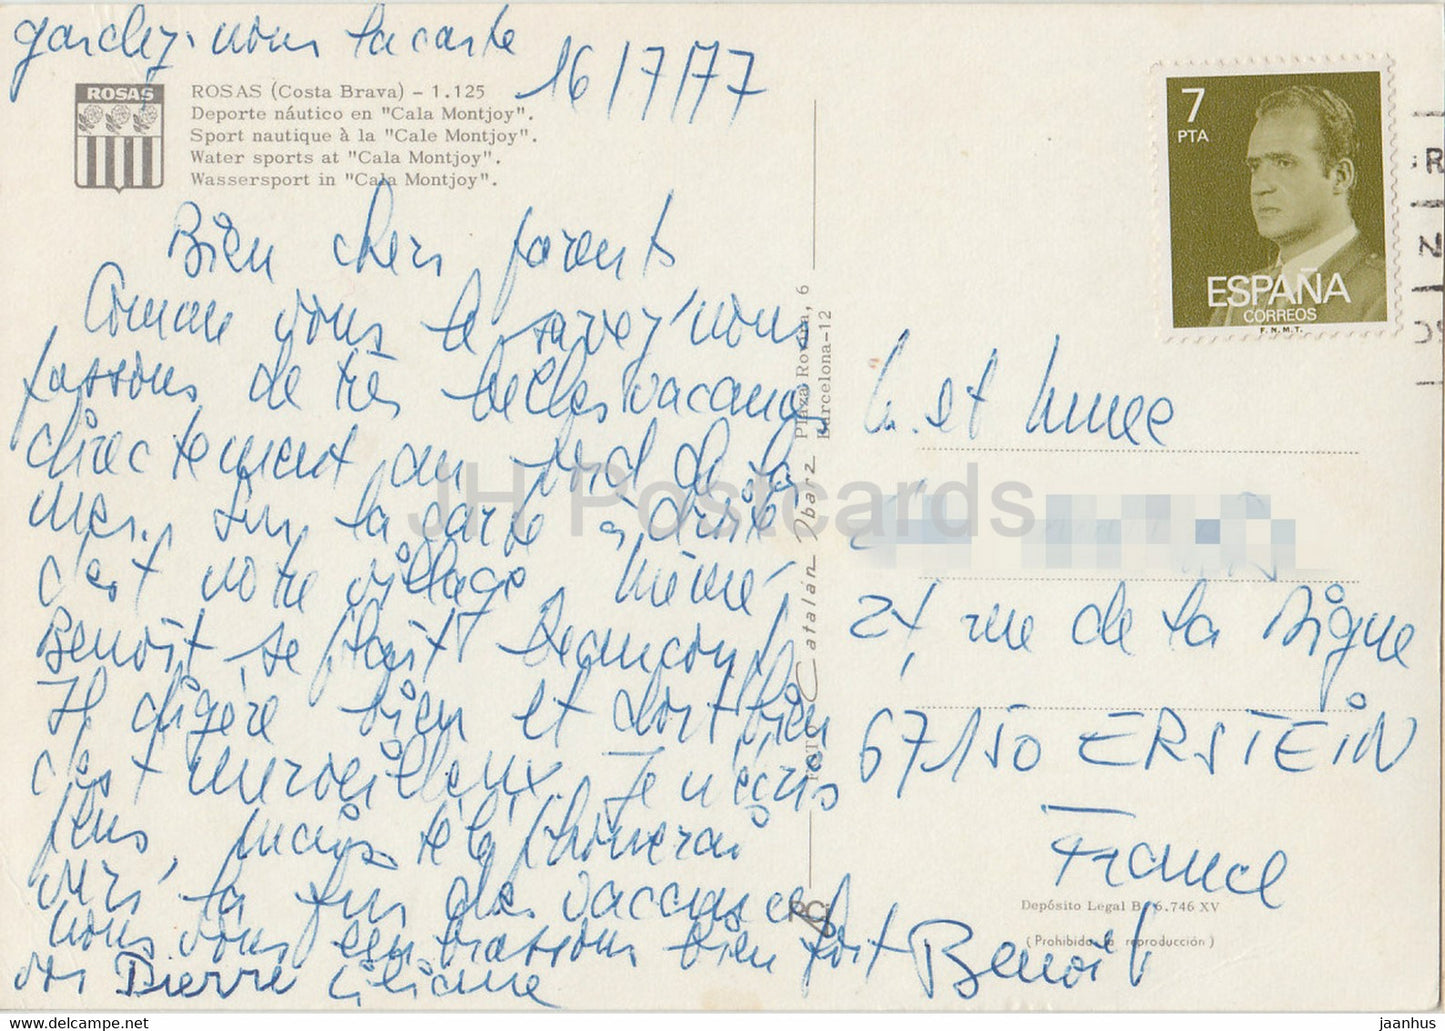 gardez-nous la carte
16/7/77
ROSAS
ROSAS (Costa Brava) - 1.125
Deporte náutico en "Cala Montjoy".
Sport nautique à la "Cale Montjoy".
Water sports at "Cala Montjoy".
Wassersport in "Cala Montjoy".
Bien chers parents
Comme vous le savez, nous
passons de très belles vacances
directement au bord de la
mer. Sur la carte à droite
c'est notre village. Même
Benoît se plaît beaucoup!
Il digère bien et dort bien
c'est merveilleux. Je n'écris
plus, mais téléphonerai
vers la fin des vacances et
nous vous embrassons bien fort
vos Pierre Liliane
Benoît
7
PTA
ESPAÑA
CORREOS
F.N.M.T.
M. et Mme
24, rue de la Digue
67150 ERSTEIN
France
FOTO Catalán Ibarz Plaza Rovira, 6
Barcelona-12
Depósito Legal B. 6.746 XV
(Prohibida la reproducción)
JH Postcards
delcampe.net
jaanhus